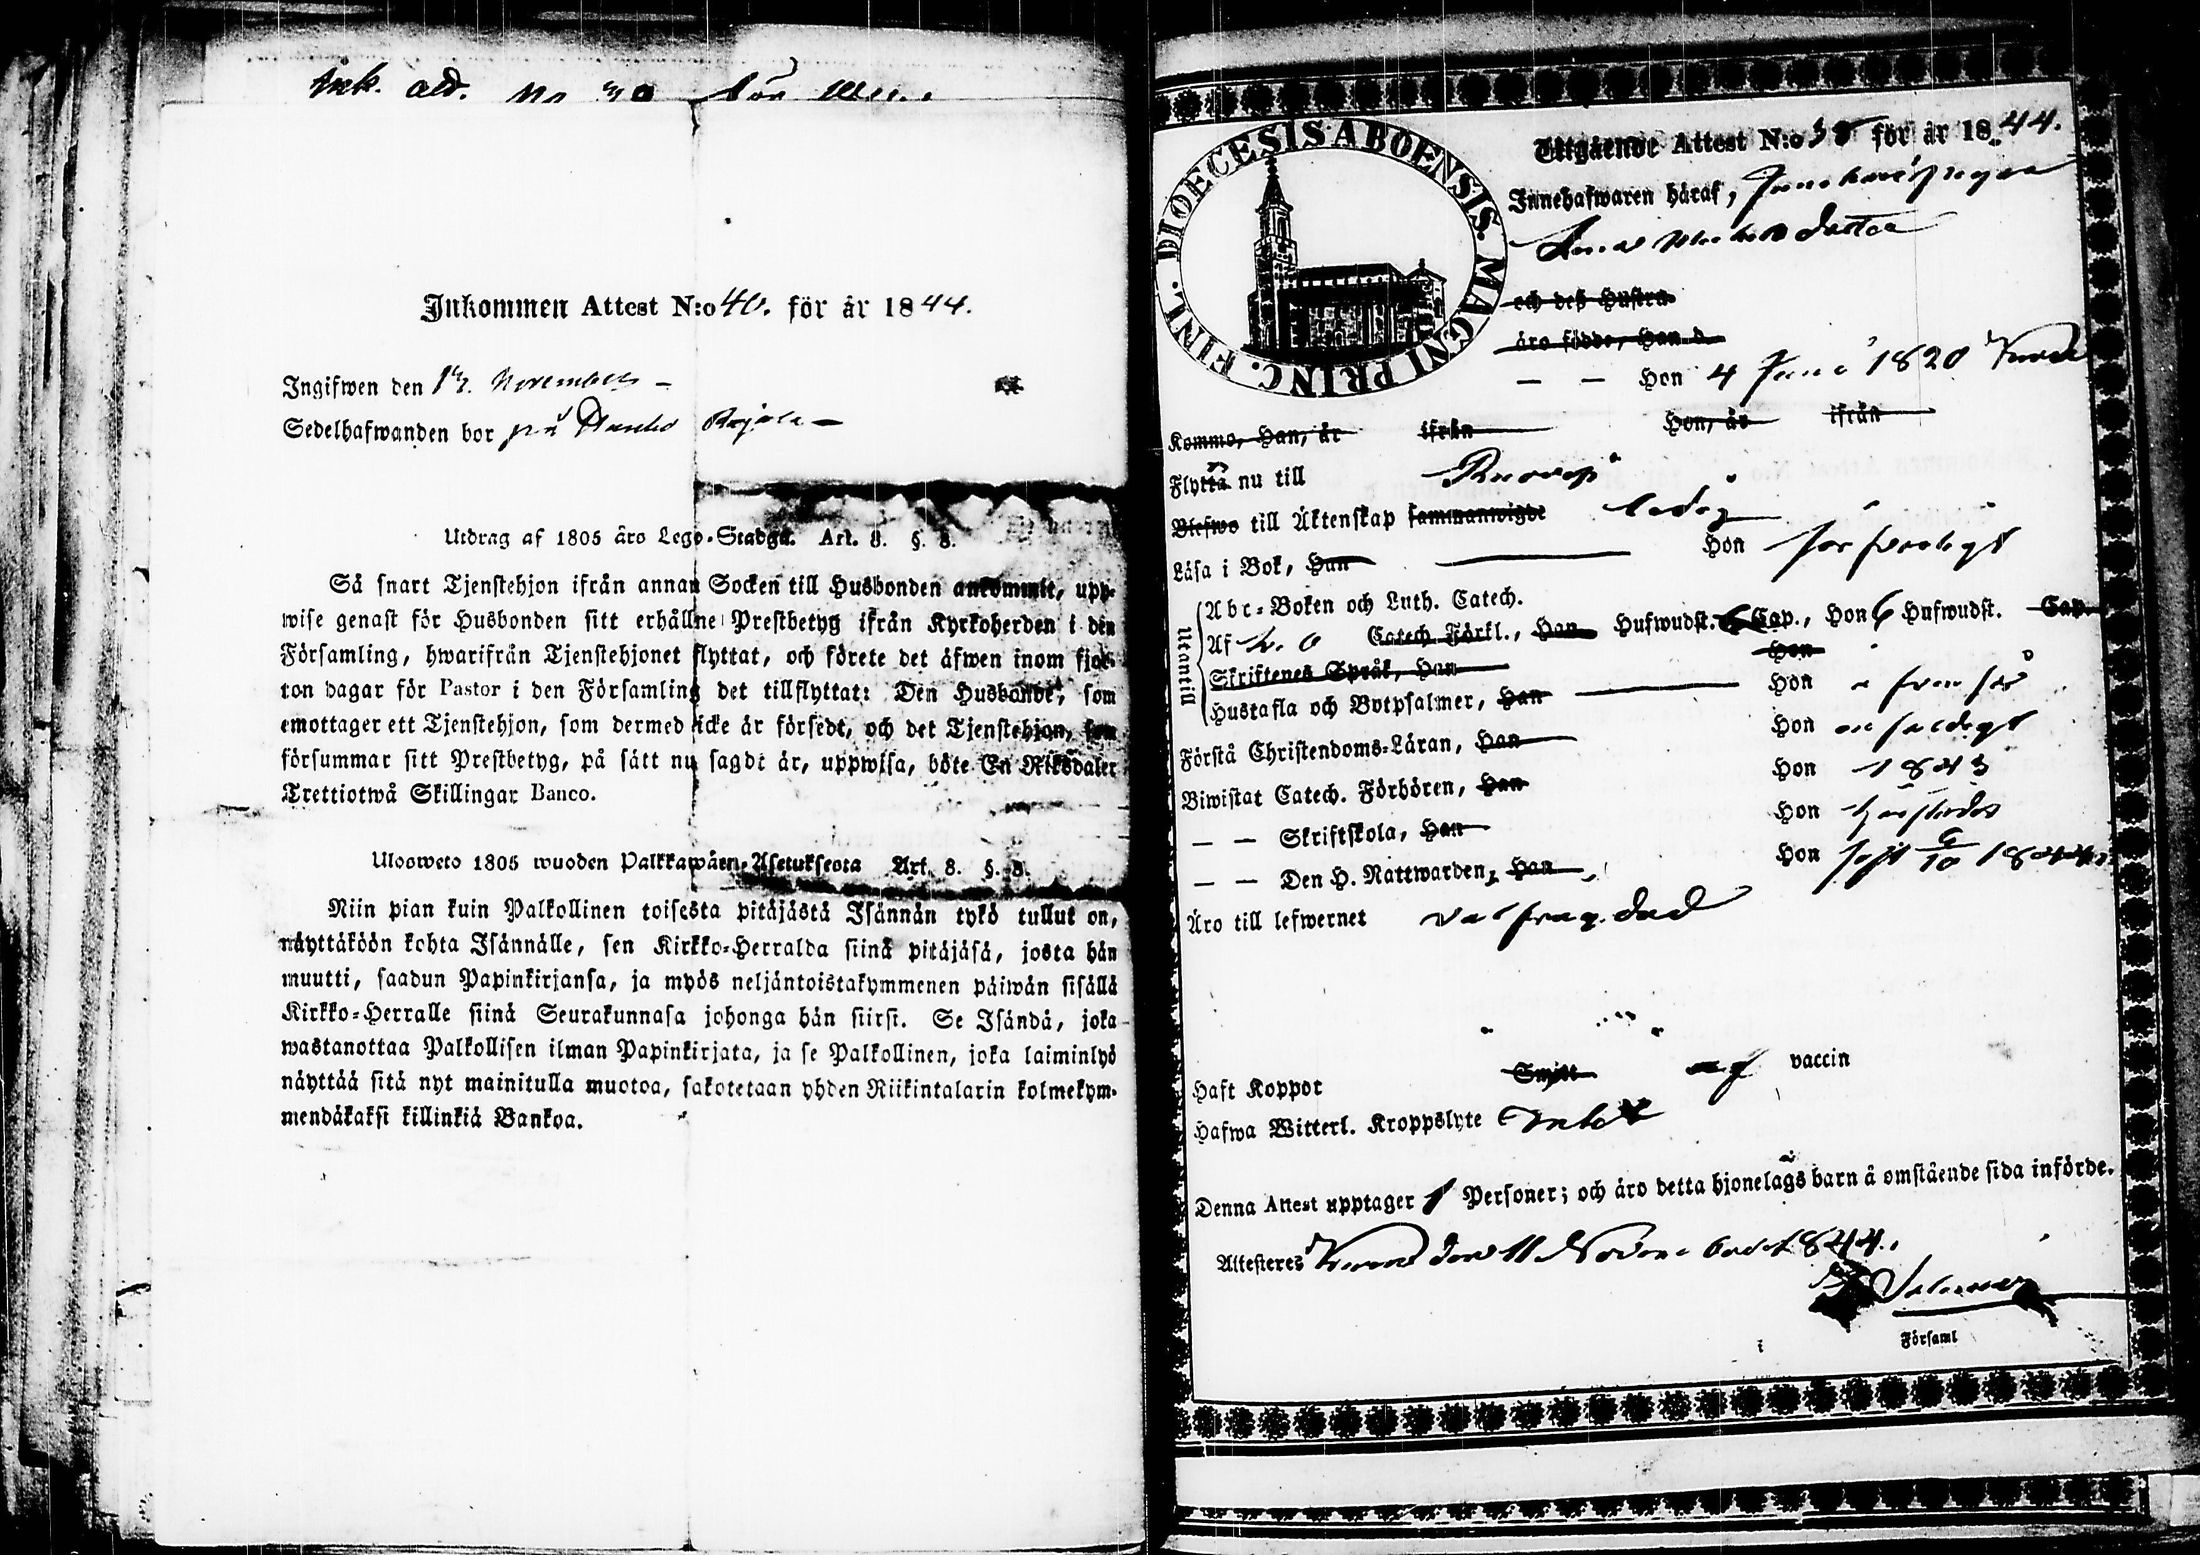 Ink. att. No 30 för
Inkommen Attest N:o 40. för år 1844.
Ingifwen den 13. November –
Sedelhafwanden bor på
Utdrag af 1805 åro Lego-Stadga. Art. 8. §. 8.
Så snart Tjenstehjon ifrån annan Socken till Husbonden ankommit, upp-
wise genast för Husbonden sitt erhållne Prestbetyg ifrån Kyrkoherden i den
Församling, hwarifrån Tjenstehjonet flyttat, och förete det äfwen inom fjor-
ton dagar för Pastor i den Församling det tillflyttat: Den Husbonde, som
emottager ett Tjenstehjon, som dermed icke är försedt, och det Tjenstehjon, som
försummar sitt Prestbetyg, på sätt nu sagdt är, uppwisa, böte En Riksdaler
Trettiotwå Skillingar Banco.
Ulosweto 1805 wuoden Palkkawäen-Asetuksesta Art. 8. §. 8.
Niin pian kuin Palkollinen toisesta pitäjästä Isännän tykö tullut on,
näyttäköön kohta Isännälle, sen Kirkko-Herralda siinä pitäjäsä, josta hän
muutti, saadun Papinkirjansa, ja myös neljäntoistakymmenen päiwän sisällä
Kirkko-Herralle siinä Seurakunnasa johonga hän siirsi. Se Isändä, joka
wastanottaa Palkollisen ilman Papinkirjata, ja se Palkollinen, joka laiminlyö
näyttää sitä nyt mainitulla muotoa, sakotetaan yhden Riikintalarin kolmekym-
mendäkaksi killinkiä Bankoa.
DIOECESIS ABOENSIS. MAGNI PRINC. FINL.
Utgående Attest N:o 38 för år 1844.
Innehafwaren häraf,
Anna Michelsdotter
och deß Hustru
äro födde, Han d.
— — Hon 4 Juni 1820
Komme, Han, år ifrån Hon, år ifrån
Flytta nu till
Blefwo till Äktenskap sammanwigde ledig
Läsa i Bok, Han Hon försvarligt
Utantill
Abc-Boken och Luth. Catech.
Af Catech. Förkl., Han Hufwudst. Cap., Hon 6 Hufwudst. Cap.
Skriftenes Språk, Han Hon
Hustafla och Botpsalmer, Han Hon
Förstå Christendoms-Läran, Han Hon
Biwistat Catech. Förhören, Han Hon 1843
— — Skriftskola, Han Hon
— — Den H. Nattwarden, Han Hon 6/10 1844
Äro till lefwernet välfrägdad
Haft Koppor Smitt af vaccin
Hafwa Witterl. Kroppslyte
Denna Attest upptager 1 Personer; och äro detta hjonelags barn å omstående sida införde.
Attesteres den 11 November 1844.
i Församl